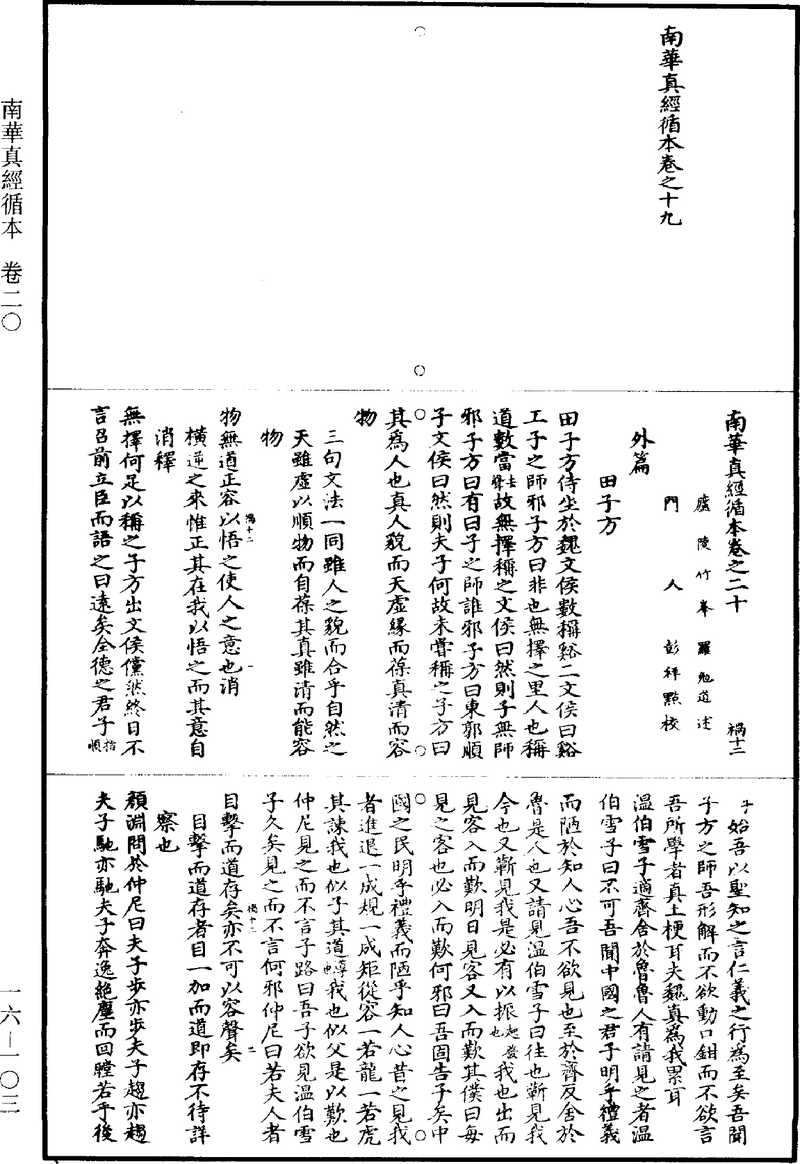 南華真經循本卷之十九
南華真經循本卷之二十 禍十二
廬陵竹峯羅勉道述
門人彭祥點校
外篇
田子方
田子方侍坐於魏文侯數稱谿工文侯曰谿
工子之師邪子方曰非也無擇之里人也稱
道數當故無擇稱之文侯曰然則子無師
邪子方曰有曰子之師誰邪子方曰東郭順
子文侯曰然則夫子何故未嘗稱之子方曰
其爲人也真人貌而天虛緣而葆真清而容
物
三句文法一同雖人之貌而合乎自然之
天雖虛以順物而自葆其真雖清而能容
物
物無道正容以悟之使人之意也消
橫逆之來惟正其在我以悟之而其意自
消釋
無擇何足以稱之子方出文侯儻然終日不
言召前立臣而語之曰遠矣全德之君子指順
子始吾以聖知之言仁義之行為至矣吾聞
子方之師吾形解而不欲動口鉗而不欲言
吾所學者真土梗耳夫魏真爲我累耳
溫伯雪子適齊舍於魯魯人有請見之者溫
伯雪子曰不可吾聞中國之君子明乎禮義
而陋於知人心吾不欲見也至於齊反舍於
魯是人也又請見溫伯雪子曰往也蘄見我
今也又蘄見我是必有以振起發也我也出而
見客入而歎明日見客又入而歎其僕曰每
見之客也必入而歎何邪曰吾固告子矣中
國之民明乎禮義而陋乎知人心昔之見我
者進退一成規一成矩從容一若龍一若虎
其諫我也似子其道導我也似父是以歎也
仲尼見之而不言子路曰吾子欲見溫伯雪
子久矣見之而不言何邪仲尼曰若夫人者
目擊而道存矣亦不可以容聲矣
目擊而道存者目一加而道即存不待詳
察也
顏淵問於仲尼曰夫子步亦步夫子趨亦趨
夫子馳亦馳夫子奔逸絕塵而回瞠若乎後
南華真經循本 卷二〇
一六—一〇三